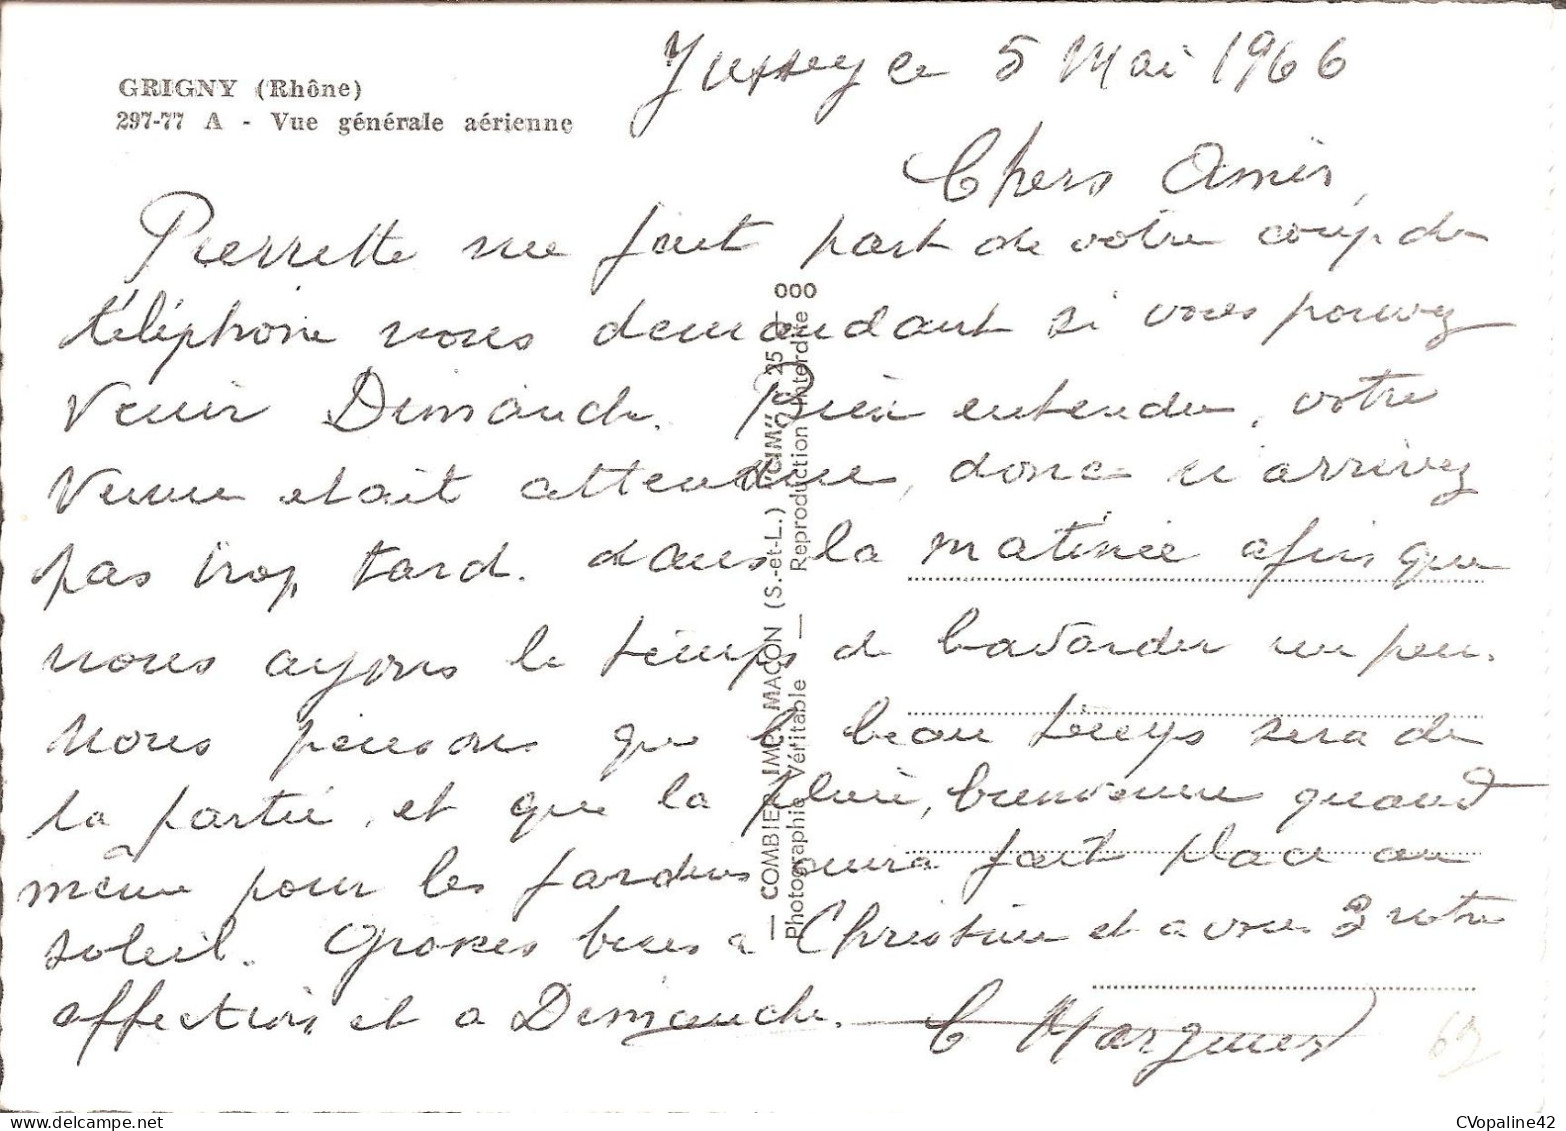 GRIGNY (Rhône)
297-77 A - Vue générale aérienne
Jussey ce 5 Mai 1966
Chers Amis,
Pierrette me fait part de votre coup de
téléphone nous demandant si vous pouvez
venir Dimanche. Bien entendu, votre
venue etait attendue, donc n'arrivez
pas trop tard. dans la matinée afin que
nous ayons le temps de bavarder un peu.
Nous pensons que le beau temps sera de
la partie, et que la pluie, bienvenue quand
même pour les jardins aura fait place au
soleil. Grosses bises a Christine et a vous 2 notre
affection et a Dimanche.
— COMBIER IMP. MACON (S.-et-L.) "CIM" 25 — 000
Photographie Véritable — Reproduction Interdite
69
CVopaline42